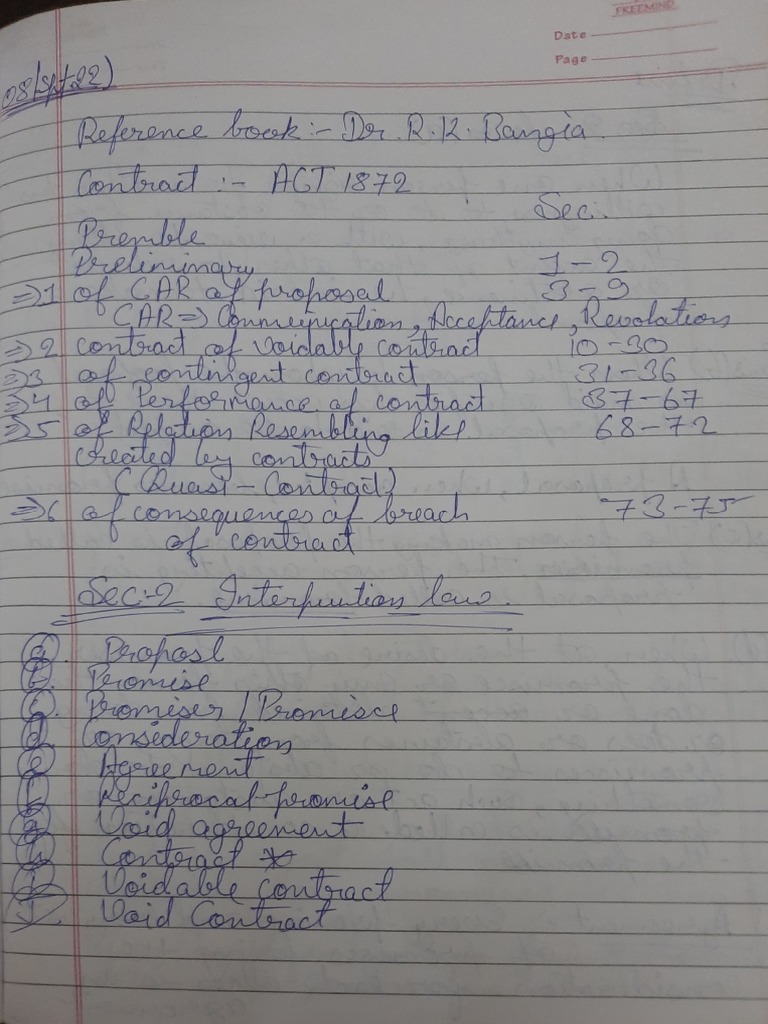 FREEMIND
Date
Page
08/Spt.22)
Reference book:- Dr. R.K. Bangia.
Contract :- ACT 1872
Sec.
Premble
Preliminary 1-2
⇒1 of CAR of proposal 3-9
CAR ⇒ Communication, Acceptance, Revolations
⇒2 contract of voidable contract 10-30
⇒3 of contingent contract 31-36
⇒4 of Performance of contract 37-67
⇒5 of Relation Resembling like 68-72
created by contracts
(Quasi-Contract)
⇒6 of consequences of breach 73-75
of contract
Sec:-2 Interpution law.
a. Proposl
b. Promise
c. Promiser / Promisce
d. Consideration
e. Agreement
f. Reciprocal promise
g. Void agreement
h. Contract *
i. Voidable contract
J. Void Contract